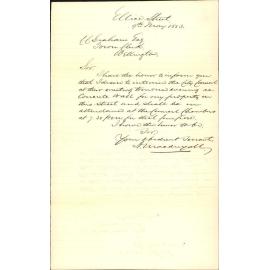 Ellice Street
9th May 1883.
Graham Esq
Town Clerk
Wellington
Sir
I have the honor to inform you
that I desire to interview the City Council
at their meeting tomorrow evening re
Concrete Wall for my property in
this street and shall be in
attendance at the Council Chambers
at 7.30 pm for that purpose.
I have the honor to be
Sir
Your obedient Servant